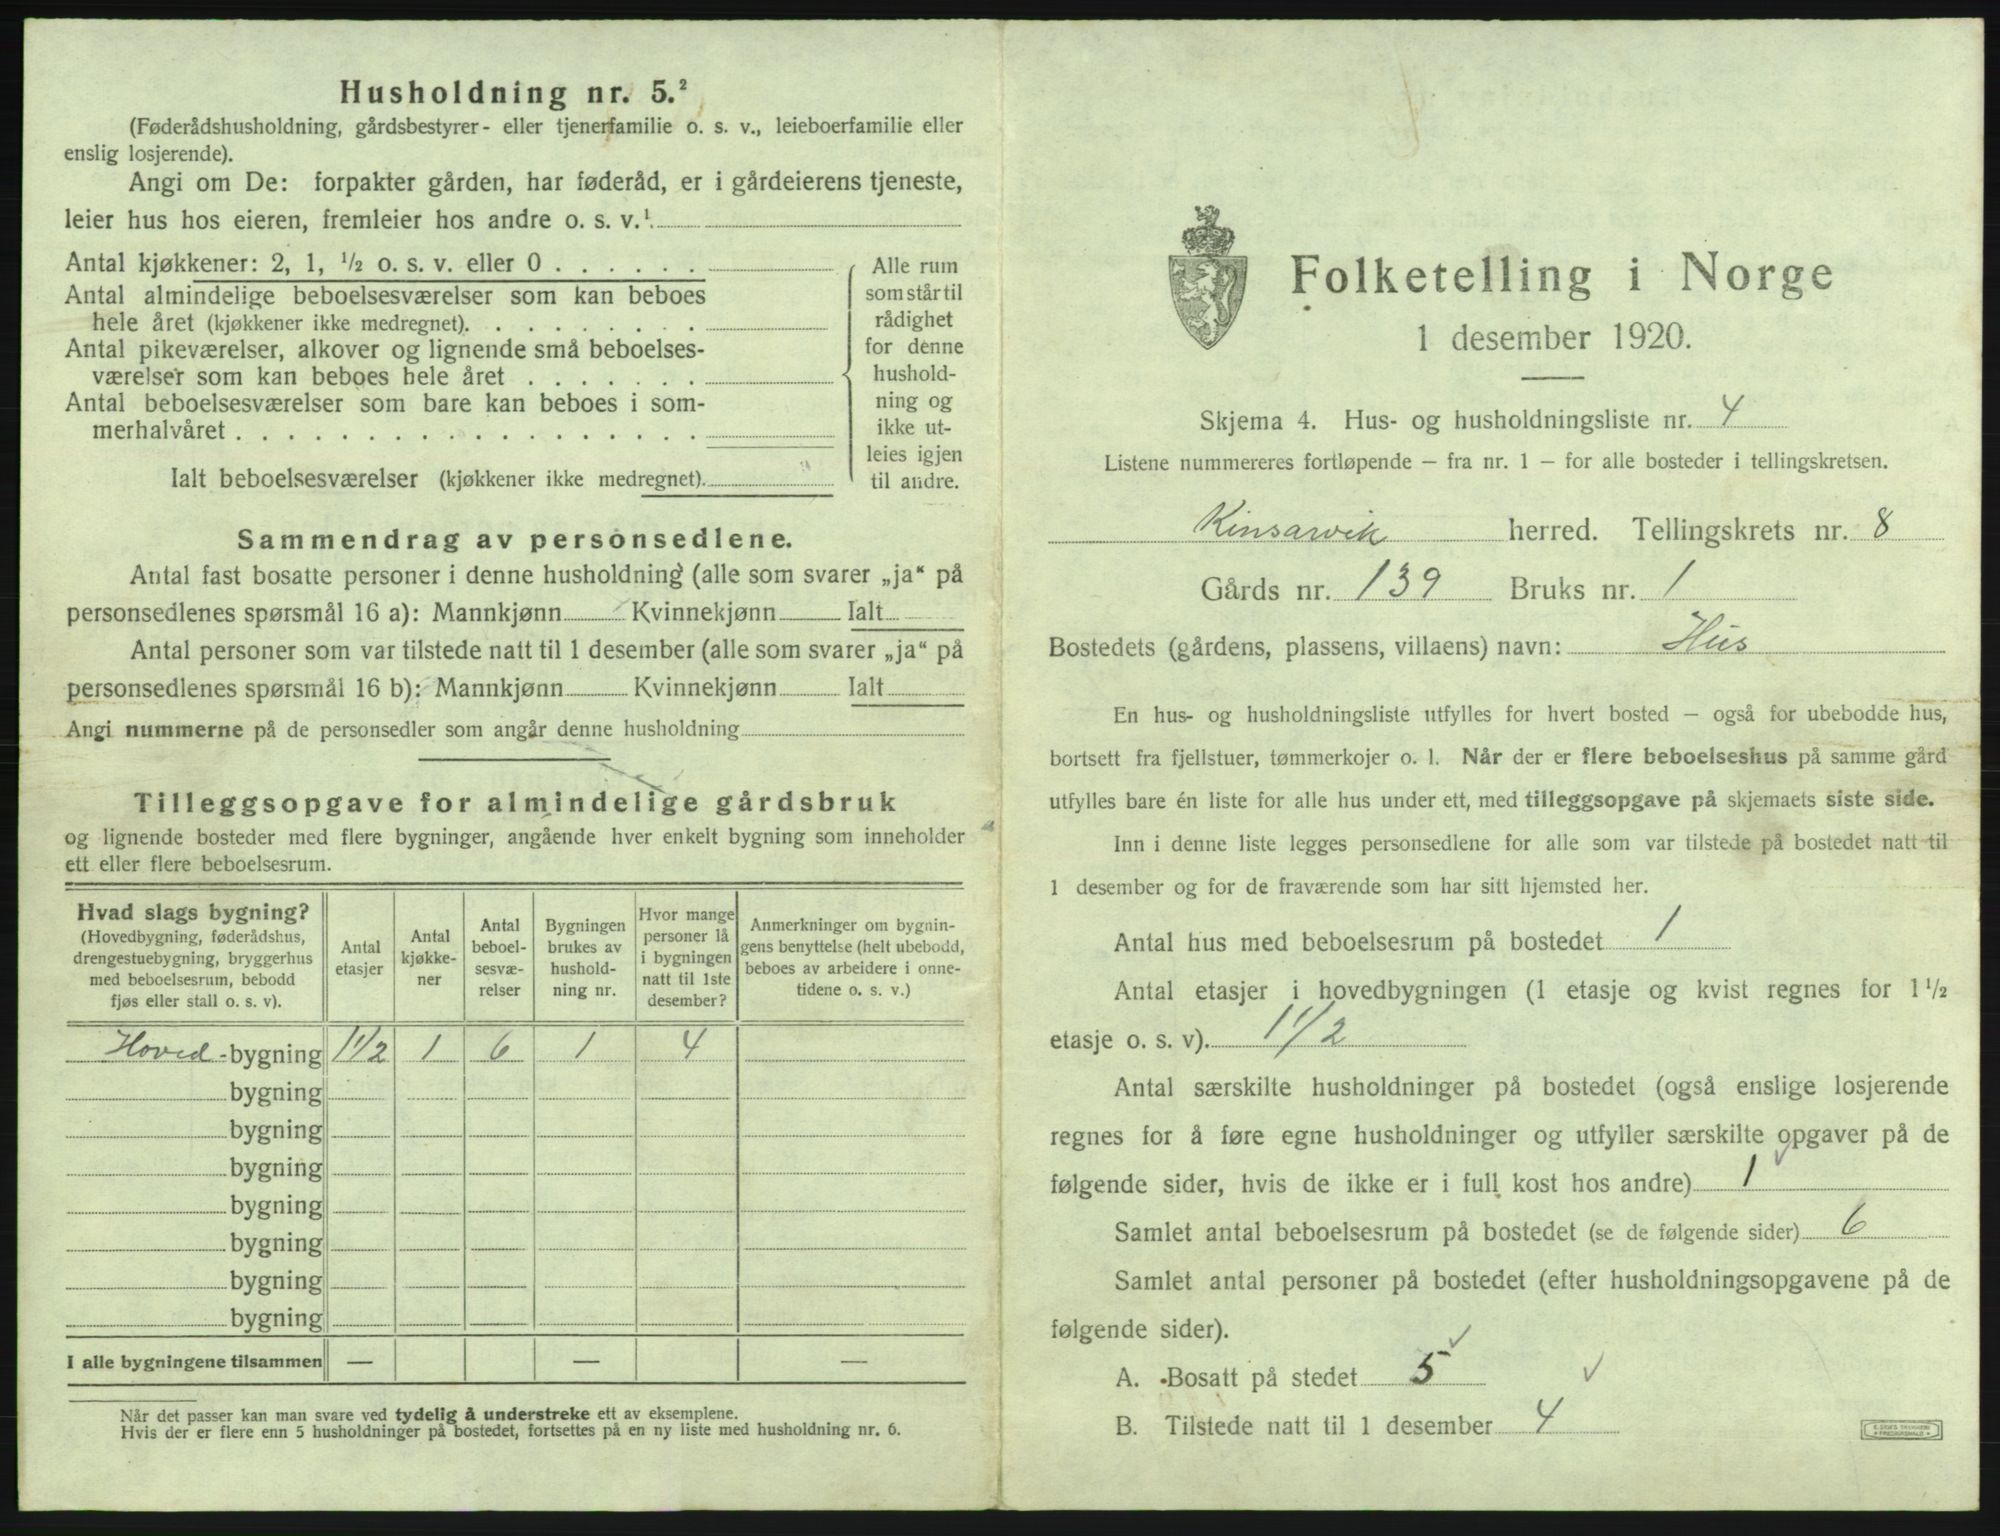 Husholdning nr. 5.²
(Føderådshusholdning, gårdsbestyrer- eller tjenerfamilie o. s. v., leieboerfamilie eller
enslig losjerende).
Angi om De: forpakter gården, har føderåd, er i gårdeierens tjeneste,
leier hus hos eieren, fremleier hos andre o. s. v.¹
Antal kjøkkener: 2, 1, ½ o. s. v. eller 0
Antal almindelige beboelsesværelser som kan beboes
hele året (kjøkkener ikke medregnet).
Antal pikeværelser, alkover og lignende små beboelses-
værelser som kan beboes hele året
Antal beboelsesværelser som bare kan beboes i som-
merhalvåret
Ialt beboelsesværelser (kjøkkener ikke medregnet).
Alle rum
som står til
rådighet
for denne
hushold-
ning og
ikke ut-
leies igjen
til andre.
Sammendrag av personsedlene.
Antal fast bosatte personer i denne husholdning (alle som svarer „ja“ på
personsedlenes spørsmål 16 a): Mannkjønn Kvinnekjønn Ialt
Antal personer som var tilstede natt til 1 desember (alle som svarer „ja“ på
personsedlenes spørsmål 16 b): Mannkjønn Kvinnekjønn Ialt
Angi nummerne på de personsedler som angår denne husholdning
Tilleggsopgave for almindelige gårdsbruk
og lignende bosteder med flere bygninger, angående hver enkelt bygning som inneholder
ett eller flere beboelsesrum.
Hvad slags bygning?
(Hovedbygning, føderådshus,
drengestuebygning, bryggerhus
med beboelsesrum, bebodd
fjøs eller stall o. s. v).
Antal
etasjer
Antal
kjøkke-
ner
Antal
beboel-
sesvæ-
relser
Bygningen
brukes av
hushold-
ning nr.
Hvor mange
personer lå
i bygningen
natt til 1ste
desember?
Anmerkninger om bygnin-
gens benyttelse (helt ubebodd,
beboes av arbeidere i onne-
tidene o. s. v.)
Hoved-bygning 1 1/2 1 6 1 4
bygning
bygning
bygning
bygning
bygning
bygning
bygning
I alle bygningene tilsammen — — —
Når det passer kan man svare ved tydelig å understreke ett av eksemplene.
Hvis der er flere enn 5 husholdninger på bostedet, fortsettes på en ny liste med husholdning nr. 6.
Folketelling i Norge
1 desember 1920.
Skjema 4. Hus- og husholdningsliste nr. 4
Listene nummereres fortløpende – fra nr. 1 – for alle bosteder i tellingskretsen.
Kinsarvik herred. Tellingskrets nr. 8
Gårds nr. 139 Bruks nr. 1
Bostedets (gårdens, plassens, villaens) navn: Hus
En hus- og husholdningsliste utfylles for hvert bosted – også for ubebodde hus,
bortsett fra fjellstuer, tømmerkojer o. l. Når der er flere beboelseshus på samme gård
utfylles bare én liste for alle hus under ett, med tilleggsopgave på skjemaets siste side.
Inn i denne liste legges personsedlene for alle som var tilstede på bostedet natt til
1 desember og for de fraværende som har sitt hjemsted her.
Antal hus med beboelsesrum på bostedet 1
Antal etasjer i hovedbygningen (1 etasje og kvist regnes for 1 ½
etasje o. s. v). 1 1/2
Antal særskilte husholdninger på bostedet (også enslige losjerende
regnes for å føre egne husholdninger og utfyller særskilte opgaver på de
følgende sider, hvis de ikke er i full kost hos andre) 1
Samlet antal beboelsesrum på bostedet (se de følgende sider) 6
Samlet antal personer på bostedet (efter husholdningsopgavene på de
følgende sider).
A. Bosatt på stedet 5
B. Tilstede natt til 1 desember 4